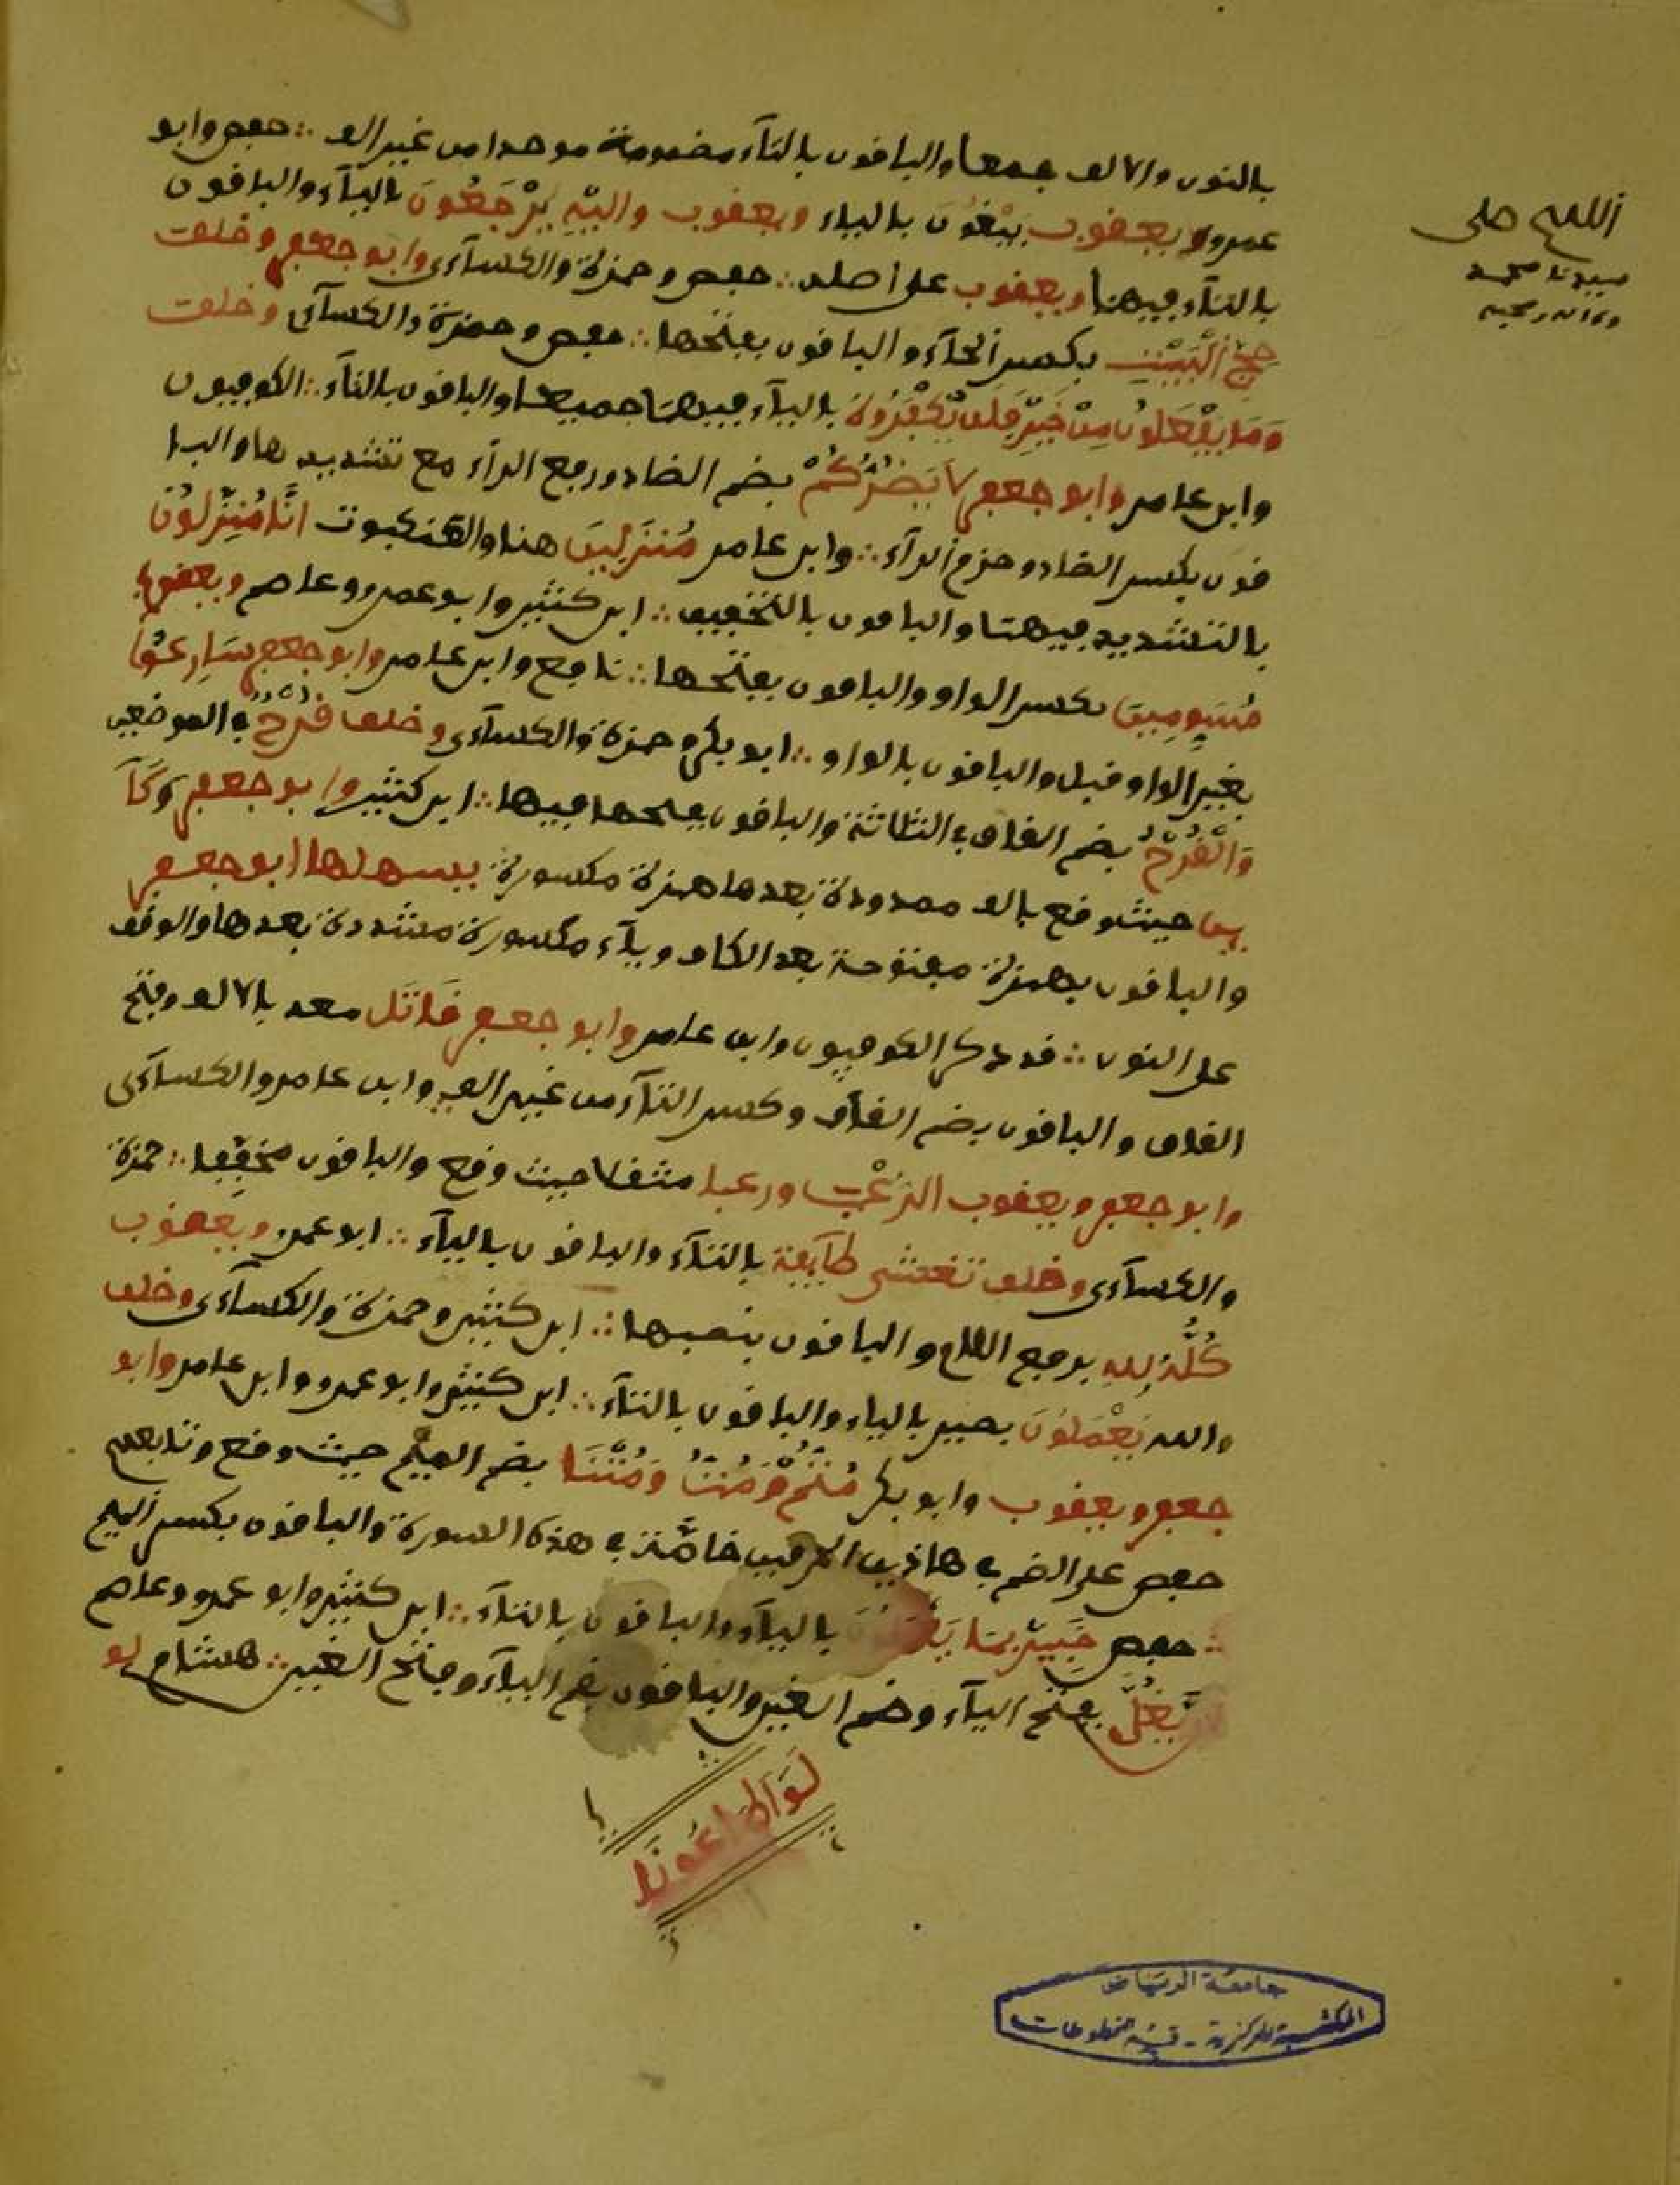 بالنون والالف جمعا والباقون بالتآء مضمومة موحدا من غير الف ∴ حفص وابو
عمرو ويعقوب يبْغُونَ بالياء ويعقوب واليْهِ يَرْجَعُونَ باليآء والباقون
بالتآء فيهما ويعقوب على اصله ∴ حفص وحمزة والكسآءى وابو جعفر وخلف
حِجُّ اْلبَيْتِ بكسر الحآء والباقون بفتحها ∴ حفص وحمزة والكسآى وخلف
وَمَا يَفْعَلُونْ مِنْ خَيْرٍ فَلَنْ يُكْفَرُوهُ باليآء فيهما جميعا والباقون بالتآء ∴ الكوفيون
وابن عامر وابو جعفر لا يَضُرُّكُمْ بضم الضاد ورفع الرآء مع تشديدها والبا
قون بكسر الضاد وجزم الرآء ∴ وابن عامر مُنَزَّلِينَ هنا والعنكبوت انَّا مُنَزِّلُونَ
بالتشديد فيهما والباقون بالتخفيف ∴ ابن كثير وابو عمرو وعاصم ويعقوب
مُسَوِّمِينَ بكسر الواو والباقون بفتحها ∴ نافع وابن عامر وابو جعفر سَارِعُوا
بغير الواو قبل والباقون بالواو ∴ ابو بكر وحمزة والكسآءى وخلف قُرْحٌ في الموضعين
وَالْقُرْحُ بضم القاف في الثلاثة والباقون بفتحها فيها ∴ ابن كثير وابو جعفر وَكَآ
يِن حيث وقع بالف ممدودة بعدها همزة مكسورة يسهلها ابو جعفر
والباقون بهمزة مفتوحة بعد الكاف ويآء مكسورة مشددة بعدها والوقف
على النون ∴ قد ذكر الكوفيون وابن عامر وابو جعفر قَاتَل معه بالالف وفتح
القاف والباقون بضم القاف وكسر التآء من غير الف وابن عامر والكسآءى
وابو جعفر ويعقوب الرُّعْب ورعبا مثقلا حيث وقع والباقون مخففا ∴ حمزة
والكسآءى وخلف تغشى طآيفة بالتآء والباقون باليآء ∴ ابو عمرو ويعقوب
كُلُّهُ لِلهِ برفع اللام والباقون بنصبها ∴ ابن كثير وحمزة والكسآءى وخلف
والله يَعْمَلُونَ بصير بالياء والباقون بالتآء ∴ ابن كثير وابو عمرو وابن عامر وابو
جعفر ويعقوب وابو بكر مُتُّمْ وَمُتُّ وَمُتْنَا بضم الميم حيث وقع وتابعهم
حفص على الضم في هاذين الحرفين خاصة في هذه السورة والباقون بكسر الميم
∴ حفص خَيرٌ مما يَجْمَعُونَ باليآء والباقون بالتآء ∴ ابن كثير وابو عمرو وعاصم
يَغُلَّ بفتح اليآء وضم الغين والباقون بضم اليآء وفتح الغين ∴ هشام لو
لَوَ اطاعُونَا
اللهم صلى
سيدنا محمد
وءاله وصحبه
جامعة الرياض
المكتبة المركزية - قسم المخطوطات